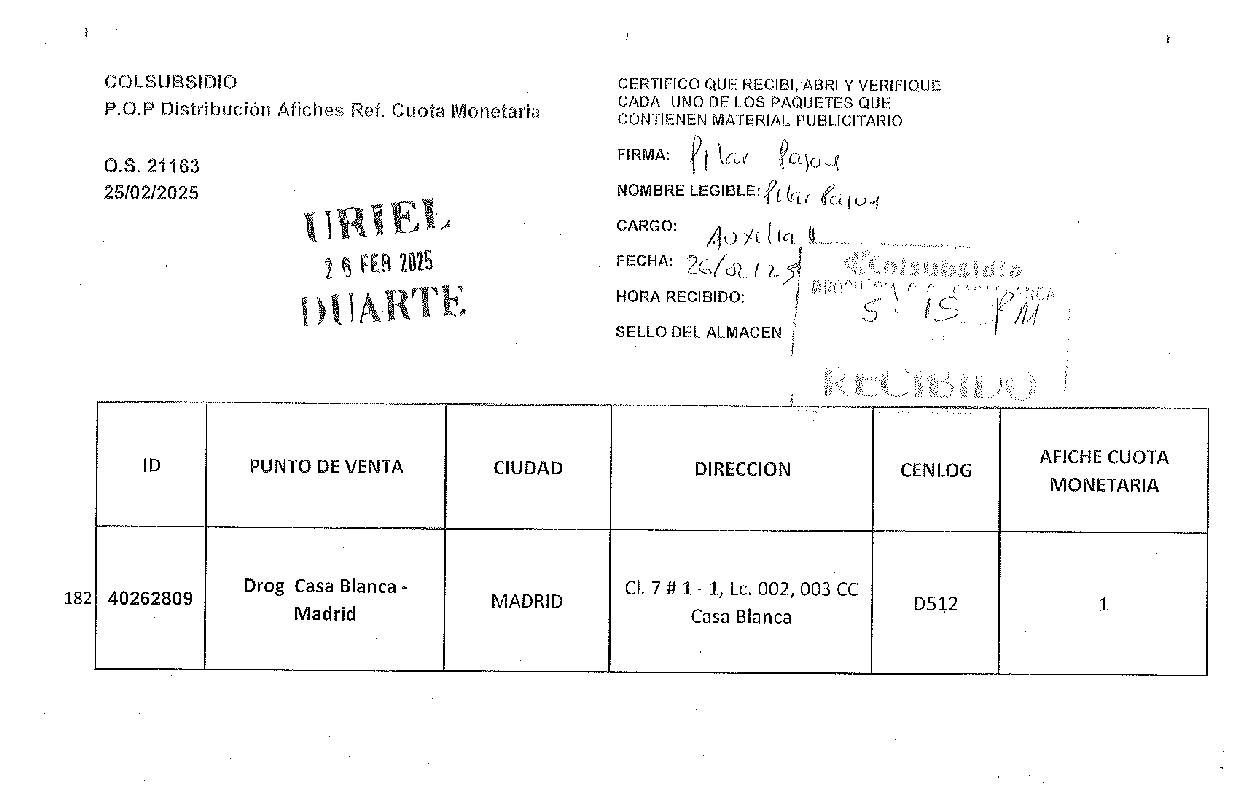 COLSUBSIDIO
P.O.P Distribución Afiches Ref. Cuota Monetaria
O.S. 21163
25/02/2025
URIEL
26 FEB 2025
DUARTE
CERTIFICO QUE RECIBI, ABRI Y VERIFIQUE
CADA UNO DE LOS PAQUETES QUE
CONTIENEN MATERIAL PUBLICITARIO
FIRMA: Pilar
NOMBRE LEGIBLE: Pilar
CARGO: Auxiliar
FECHA: 26/02/25
Colsubsidio
HORA RECIBIDO: 5:15 PM
SELLO DEL ALMACEN
RECIBIDO
ID PUNTO DE VENTA CIUDAD DIRECCION CENLOG AFICHE CUOTA MONETARIA
182 40262809 Drog Casa Blanca - Madrid MADRID Cl. 7 # 1 - 1, Lc. 002, 003 CC Casa Blanca D512 1